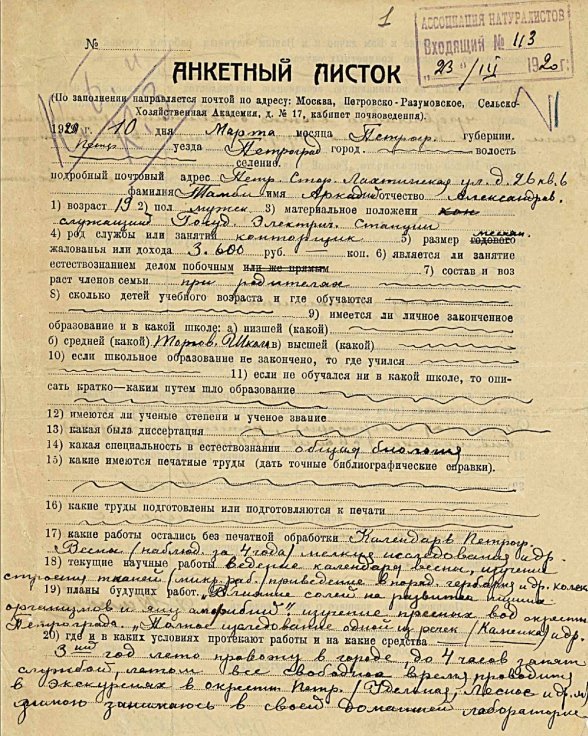 1
АССОЦИАЦИЯ НАТУРАЛИСТОВ
Входящий № 113
„23“/III 1920г.
№
АНКЕТНЫЙ ЛИСТОК
(По заполнении направляется почтой по адресу: Москва, Петровско-Разумовское, Сельско-
Хозяйственная Академия, д. № 17, кабинет почвоведения).
1920 г. 10 дня Марта месяца Петрогр. губернии.
Петр. уезда Петроград город волость
селение.
подробный почтовый адрес Петр. Стор. Лахтинская ул. д. 26 кв. 6
фамилия Тамби имя Аркадий отчество Александров.
1) возраст 19 2) пол мужск. 3) материальное положени
служащий Госуд. Электрич. Станции
4) род службы или занятий конторщик 5) размер месячн. годового
жалованья или дохода 3.600 руб. коп. 6) является ли занятие
естествознанием делом побочным или же прямым 7) состав и воз
раст членов семьи при родителях
8) сколько детей учебного возраста и где обучаются
9) имеется ли личное законченное
образование и в какой школе: а) низшей (какой)
б) средней (какой) Торгов. Школа в) высшей (какой)
10) если школьное образование не закончено, то где учился
11) если не обучался ни в какой школе, то опи-
сать кратко—каким путем шло образование
12) имеются ли ученые степени и ученое звание
13) какая была диссертация
14) какая специальность в естествознании общая биология
15) какие имеются печатные труды (дать точные библиографические справки).
16) какие труды подготовлены или подготовляются к печати
17) какие работы остались без печатной обработки Календарь Петрогр.
Весны (наблюд. за 4 года) мелкие исследования и др.
18) текущие научные работы ведение календаря весны, изучение
строения тканей (микр. раб.) приведение в поряд. гербария и др. колек
19) планы будущих работ. „Влияние солей на развитие низших
организмов и яиц амфибий“ изучение пресных вод окрестн.
Петрограда. „Полное исследование одной из речек (Каменка) и др.
20) где и в каких условиях протекают работы и на какие средства
3 ий год лето провожу в городе, до 4 часов занят
службой, летом все свободное время проводил
в экскурсиях в окрестн. Петр. (Удельная, Лесное и др.)
зимою занимаюсь в своей домашней лаборатории